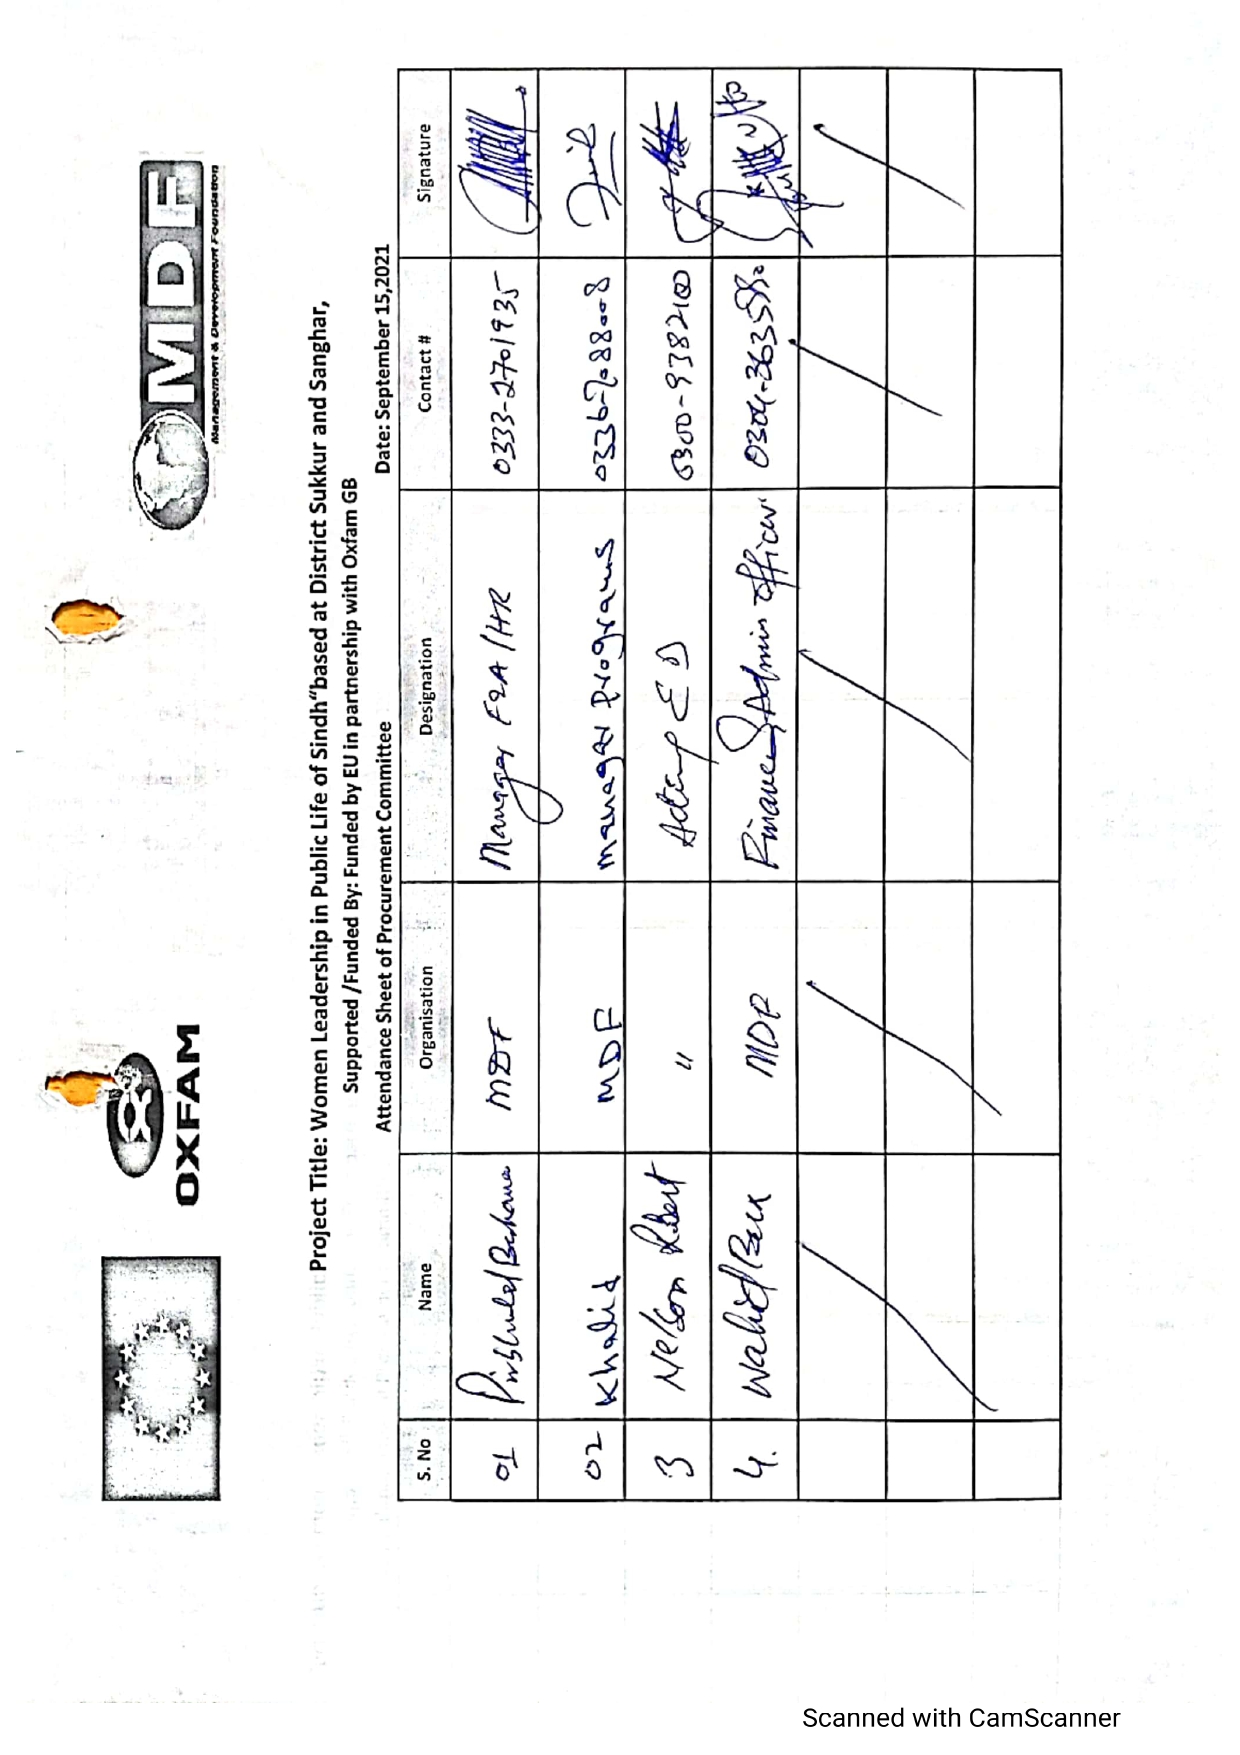 OXFAM
MDF
Management & Development Foundation
Project Title: Women Leadership in Public Life of Sindh"based at District Sukkur and Sanghar,
Supported /Funded By: Funded by EU in partnership with Oxfam GB
Attendance Sheet of Procurement Committee Date: September 15,2021
S. No Name Organisation Designation Contact # Signature
01 MDF Manager F&A/HR 0333-2701935
02 Khalid MDF Manager Programs
3 Nelson Robert " Acting ED 0300-9382100
4. Wahid Bux MDF Finance & Admin Officer
Scanned with CamScanner